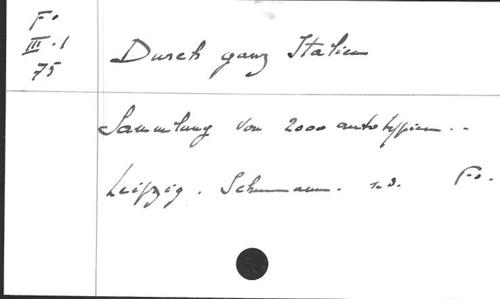 Fo
III.1
75
Durch ganz Italien
Sammlung von 2000 autotypien..
Leipzig. Schumann. s.d. Fo.